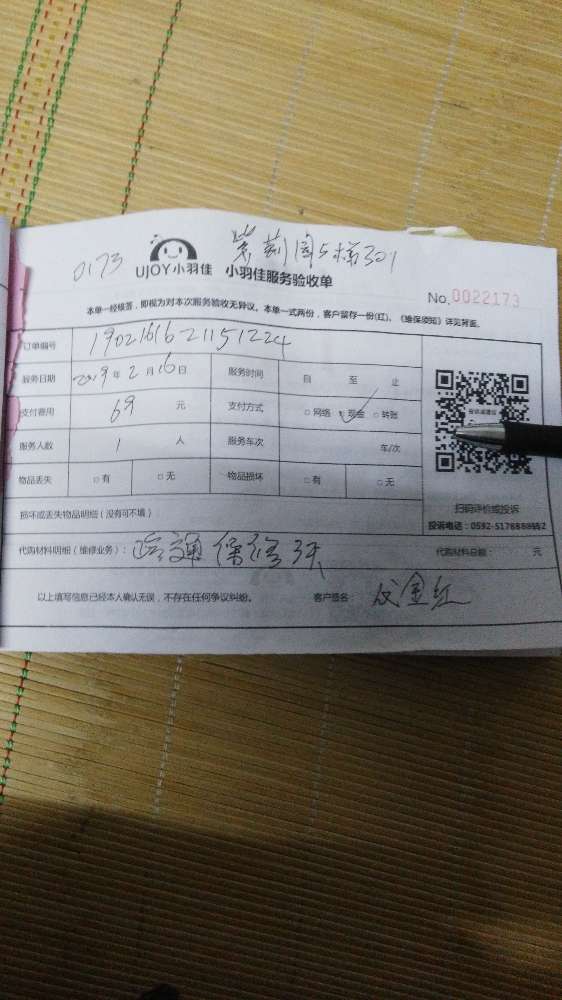 0173 紫荆园5梯301
UJOY小羽佳 小羽佳服务验收单
No.0022173
本单一经核答，即视为对本次服务验收无异议。本单一式两份，客户留存一份(红)。《维保须知》详见背面。
订单编号 1902161621151224
服务日期 2019年2月16日 服务时间 自 至 止
支付费用 69 元 支付方式 □网络 □现金 □转账
服务人数 1 人 服务车次 车/次
物品丢失 □有 □无 物品损坏 □有 □无
扫码评价或投诉
损坏或丢失物品明细（没有可不填）
投诉电话：0592-5178888转2
代购材料明细（维修业务）： 疏通 保修3天 代购材料总额： 元
以上填写信息已经本人确认无误，不存在任何争议纠纷。 客户签名： 金红